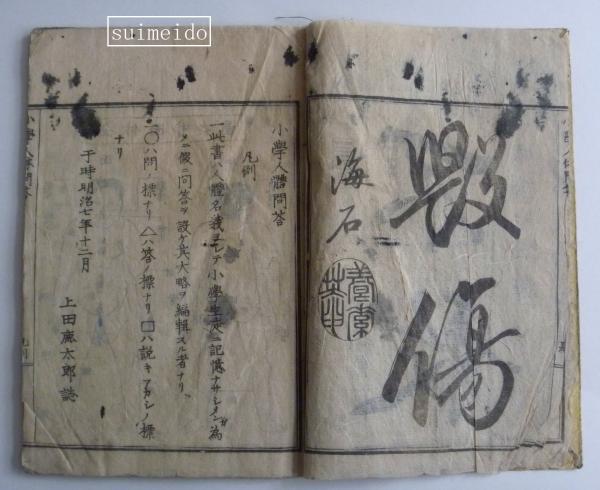 suimeido
毀傷
海石
小學人體問答
凡例
一此書ハ人體名義ヲシテ小學生徒ニ記憶ナサシメンガ為
メニ假ニ問答ヲ設ケ其大略ヲ編輯スル者ナリ
一〇ハ問ノ標ナリ△ハ答ノ標ナリ□ハ説キアカシノ標
ナリ
于時明治七年十二月
上田鹿太郎誌
小學人體問答
凡例